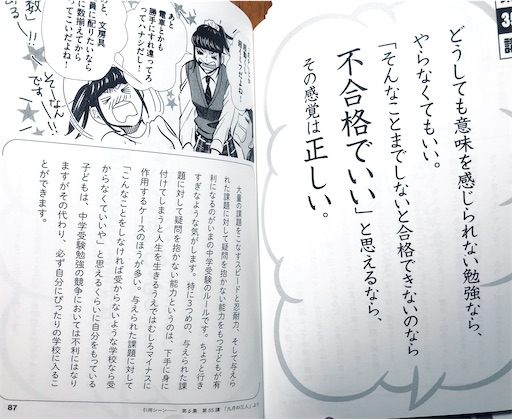 どうしても意味を感じられない勉強なら、
やらなくてもいい。
「そんなことまでしないと合格できないのなら
不合格でいい」と思えるなら、
その感覚は正しい。
あと
電車とかも
勝手にすれ違ってろ
ってハナシだし！
文房具
員に配りたいなら
に数揃えてから
ってこいだよね！
そーなん
ですーー
大量の課題をこなすスピードと忍耐力、そして与えら
れた課題に対して疑問を抱かない能力をもつ子どもが有
利になるのがいまの中学受験のルールです。ちょっと行き
すぎなような気がします。特に3つめの、与えられた課
題に対して疑問を抱かない能力というのは、下手に身に
付けてしまうと人生を生きるうえではむしろマイナスに
作用するケースのほうが多い。与えられた課題に対して
「こんなことをしなければ受からないような学校なら受
からなくていいや」と思えるくらいに自分をもっている
子どもは、中学受験勉強の競争においては不利にはなり
ますがその代わり、必ず自分にぴったりの学校に入るこ
とができます。
87
引用シーン 第6集 第55講「九月の三人」より